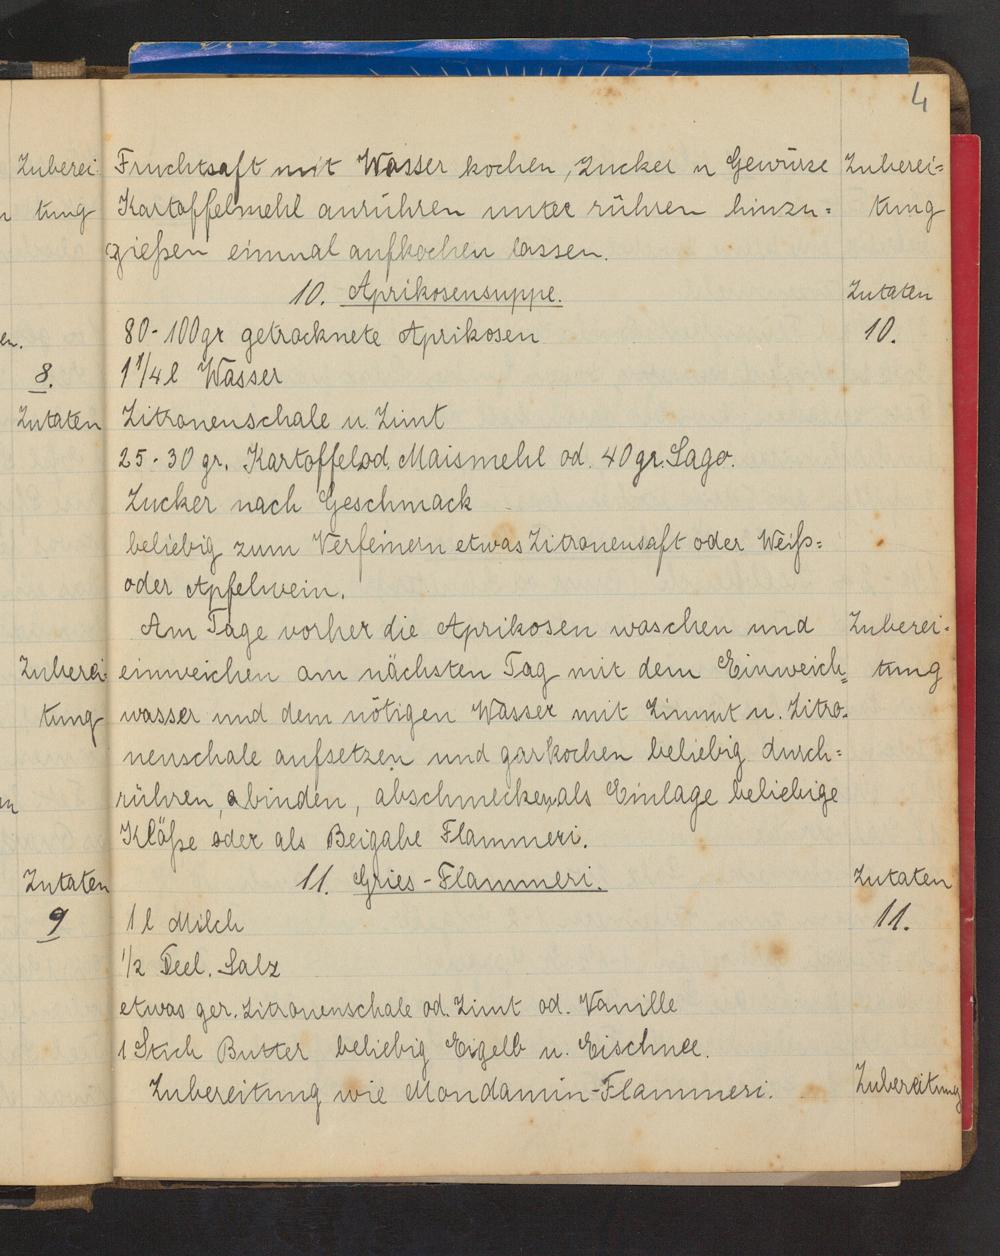 4
Zuberei
tung
8.
Zutaten
Zuberei
tung
Zutaten
9
Fruchtsaft mit Wasser kochen, Zucker u Gewürze
Kartoffelmehl anrühren unter rühren hinzu=
gießen einmal aufkochen lassen.
Zuberei=
tung
10. Aprikosensuppe.
Zutaten
10.
80-100gr getrocknete Aprikosen
1 1/4 l Wasser
Zitronenschale u. Zimt
25-30 gr. Kartoffel od. Maismehl od. 40 gr. Sago.
Zucker nach Geschmack
beliebig zum Verfeinern etwas Zitronensaft oder Weiß=
oder Apfelwein.
Am Tage vorher die Aprikosen waschen und
einweichen am nächsten Tag mit dem Einweich=
wasser und dem nötigen Wasser mit Zimmt u. Zitro-
nenschale aufsetzen und garkochen beliebig durch=
rühren, abinden, abschmecken, als Einlage beliebige
Klöße oder als Beigabe Flammeri.
Zuberei-
tung
11. Gries-Flammeri.
Zutaten
11.
1 l Milch
1/2 Teel. Salz
etwas ger. Zitronenschale od. Zimt od. Vanille
1 Stich Butter beliebig Eigelb u. Eischnee.
Zubereitung wie Mondamin-Flammeri.
Zubereitung